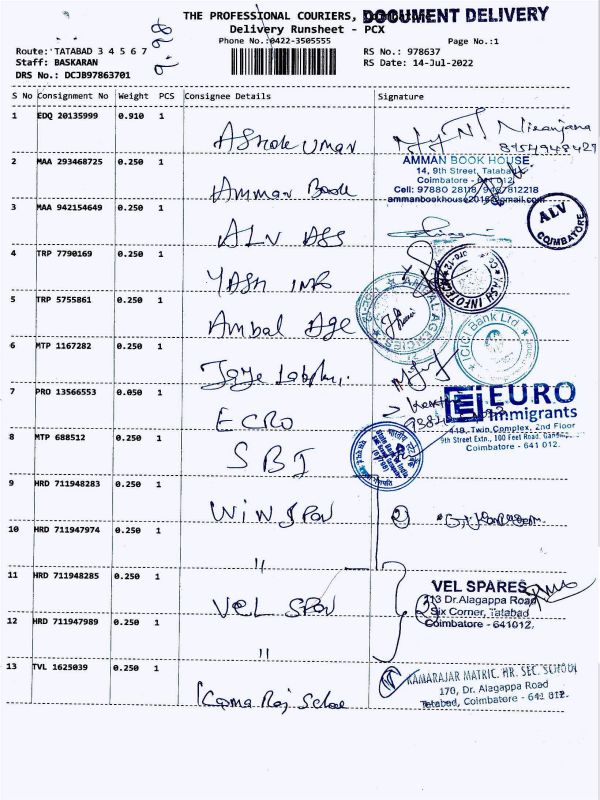 THE PROFESSIONAL COURIERS,
DOCUMENT DELIVERY
Delivery Runsheet - PCX
Phone No.:0422-3505555
Page No.:1
Route: TATABAD 3 4 5 6 7
RS No.: 978637
Staff: BASKARAN
RS Date: 14-Jul-2022
DRS No.: DCJB97863701
S No Consignment No Weight PCS Consignee Details Signature
1 EDQ 20135999 0.910 1 Ashok uman
Niranjana
2 MAA 293468725 0.250 1 Amman Book
AMMAN BOOK HOUSE
14, 9th Street, Tatabad
Coimbatore - 641 012.
Cell: 97880 28118
ammanbookhouse2016@gmail.com
3 MAA 942154649 0.250 1 ALV ASS
ALV
COIMBATORE
4 TRP 7790169 0.250 1 YASH INFO
YASH INFOTECH
5 TRP 5755861 0.250 1 Ambal Age
AMBAL AGENCIES
ICICI Bank Ltd
6 MTP 1167282 0.250 1
7 PRO 13566553 0.050 1 ECRO
EURO
immigrants
419, Twin Complex, 2nd Floor
9th Street Extn., 100 Feet Road,
Coimbatore - 641 012.
8 MTP 688512 0.250 1 SBI
State Bank of India
9 HRD 711948283 0.250 1 WIN SPON
2
10 HRD 711947974 0.250 1 "
11 HRD 711948285 0.250 1 VEL SPON
VEL SPARES
313 Dr.Alagappa Road
Six Corner, Tatabad
Coimbatore - 641012.
12 HRD 711947989 0.250 1 "
13 TVL 1625039 0.250 1 Cama Raj School
KAMARAJAR MATRIC. HR. SEC. SCHOOL
170, Dr. Alagappa Road
Tatabad, Coimbatore - 641 012.